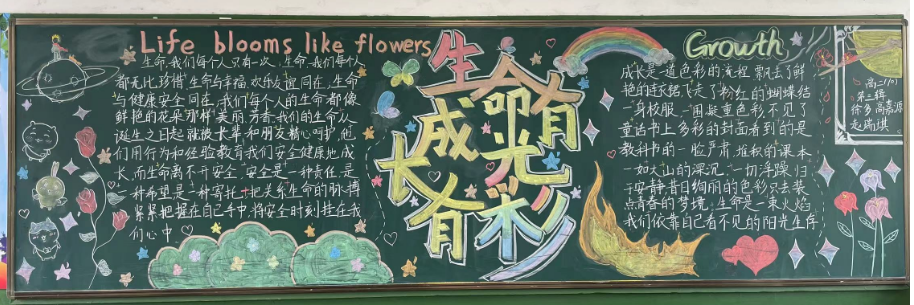 Life blooms like flowers
生命,我们每个人只有一次,生命,我们每个人
都无比珍惜,生命与幸福、欢愉友谊同在,生命
与健康安全同在,我们每个人的生命都像
鲜艳的花朵那样美丽,芳香,我们的生命从
诞生之日起就被长辈和朋友精心呵护,他
们用行为和经验教育我们安全健康地成
长,而生命离不开安全,安全是一种责任,是
一种希望,是一种寄托,把关系生命的脉搏
紧紧把握在自己手中,将安全时刻挂在我
们心中
生命有
成长有
叩光彩
Growth
成长是一道色彩的流程,飘去了鲜
艳的连衣裙,飞走了粉红的蝴蝶结
一身校服,一围凝重色彩,不见了
童话书上多彩的封面,看到的是
教科书的一脸严肃,堆积的课本
一如大山的深沉,一切浮躁归
于安静,昔日绚丽的色彩只去装
点青春的梦境,生命是一束火焰
我们依靠自己看不见的阳光生存
第三辑